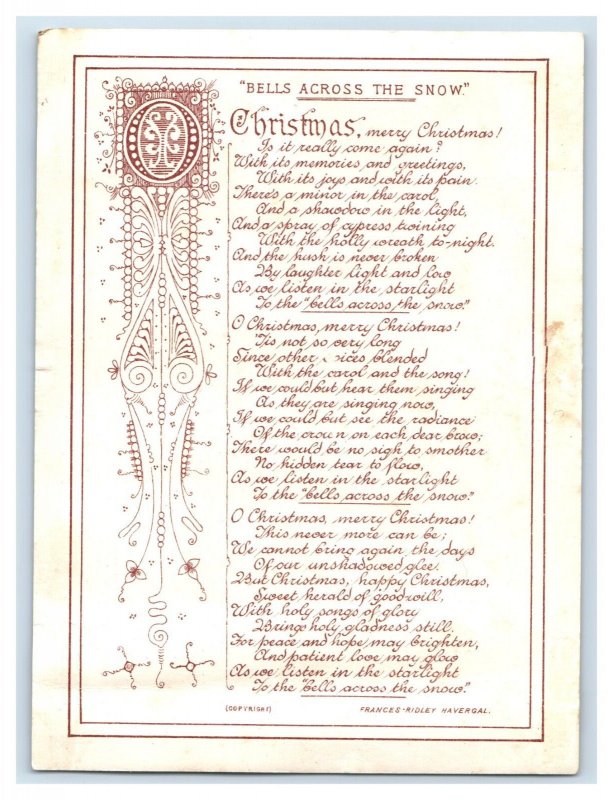 "BELLS ACROSS THE SNOW."
O Christmas, merry Christmas!
Is it really come again?
With its memories and greetings,
With its joys and with its pain.
There's a minor in the carol,
And a shawdow in the light,
And a spray of cypress twining
With the holly wreath to-night.
And the hush is never broken
By laughter light and low
As we listen in the starlight
To the "bells across the snow."
O Christmas, merry Christmas!
'Tis not so very long
Since other ices blended
With the carol and the song!
If we could but hear them singing
As they are singing now,
If we could but see the radiance
Of the crown on each dear brow;
There would be no sigh to smother
No hidden tear to flow,
As we listen in the starlight
To the "bells across the snow."
O Christmas, merry Christmas!
This never more can be;
We cannot bring again the days
Of our unshadowed glee.
But Christmas, happy Christmas,
Sweet herald of goodwill,
With holy songs of glory
Brings holy gladness still.
For peace and hope may brighten,
And patient love may glow
As we listen in the starlight
To the "bells across the snow."
(COPYRIGHT)
FRANCES·RIDLEY HAVERGAL.